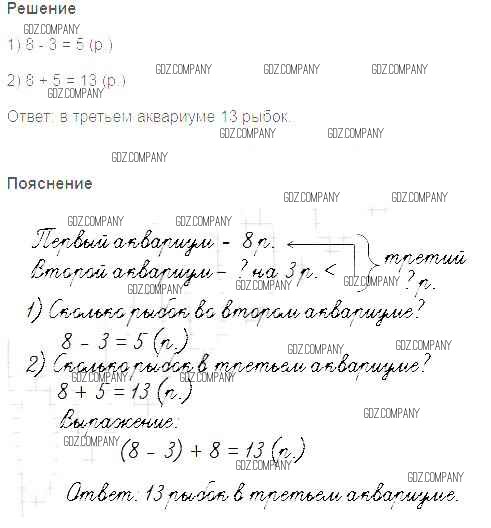 Решение
GDZ.COMPANY
1) 8 - 3 = 5 (р.)
GDZ.COMPANY GDZ.COMPANY GDZ.COMPANY
2) 8 + 5 = 13 (р.)
GDZ.COMPANY
Ответ: в третьем аквариуме 13 рыбок.
GDZ.COMPANY GDZ.COMPANY
GDZ.COMPANY
Пояснение
GDZ.COMPANY GDZ.COMPANY
GDZ.COMPANY GDZ.COMPANY
Первый аквариум - 8 р.
Второй аквариум - ? на 3 р. <
третий
? р.
GDZ.COMPANY GDZ.COMPANY GDZ.COMPANY
1) Сколько рыбок во втором аквариуме?
8 - 3 = 5 (р.)
GDZ.COMPANY GDZ.COMPANY
2) Сколько рыбок в третьем аквариуме?
GDZ.COMPANY GDZ.COMPANY
8 + 5 = 13 (р.)
GDZ.COMPANY
Выражение:
GDZ.COMPANY
(8 - 3) + 8 = 13 (р.)
GDZ.COMPANY
GDZ.COMPANY
Ответ: 13 рыбок в третьем аквариуме.